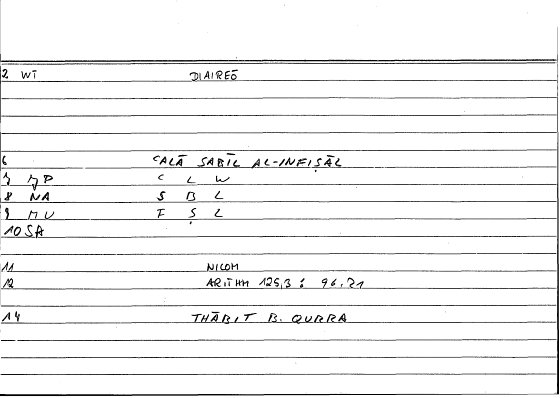 2 WT DIAIREŌ
6 ʿALĀ SABĪL AL-INFIṢĀL
7 MP ʿ L W
8 NA S B L
9 MU F Ṣ L
10 SA
11 NICOM
12 ARITHM 125,3 : 96.21
14 THĀBIT B. QURRA